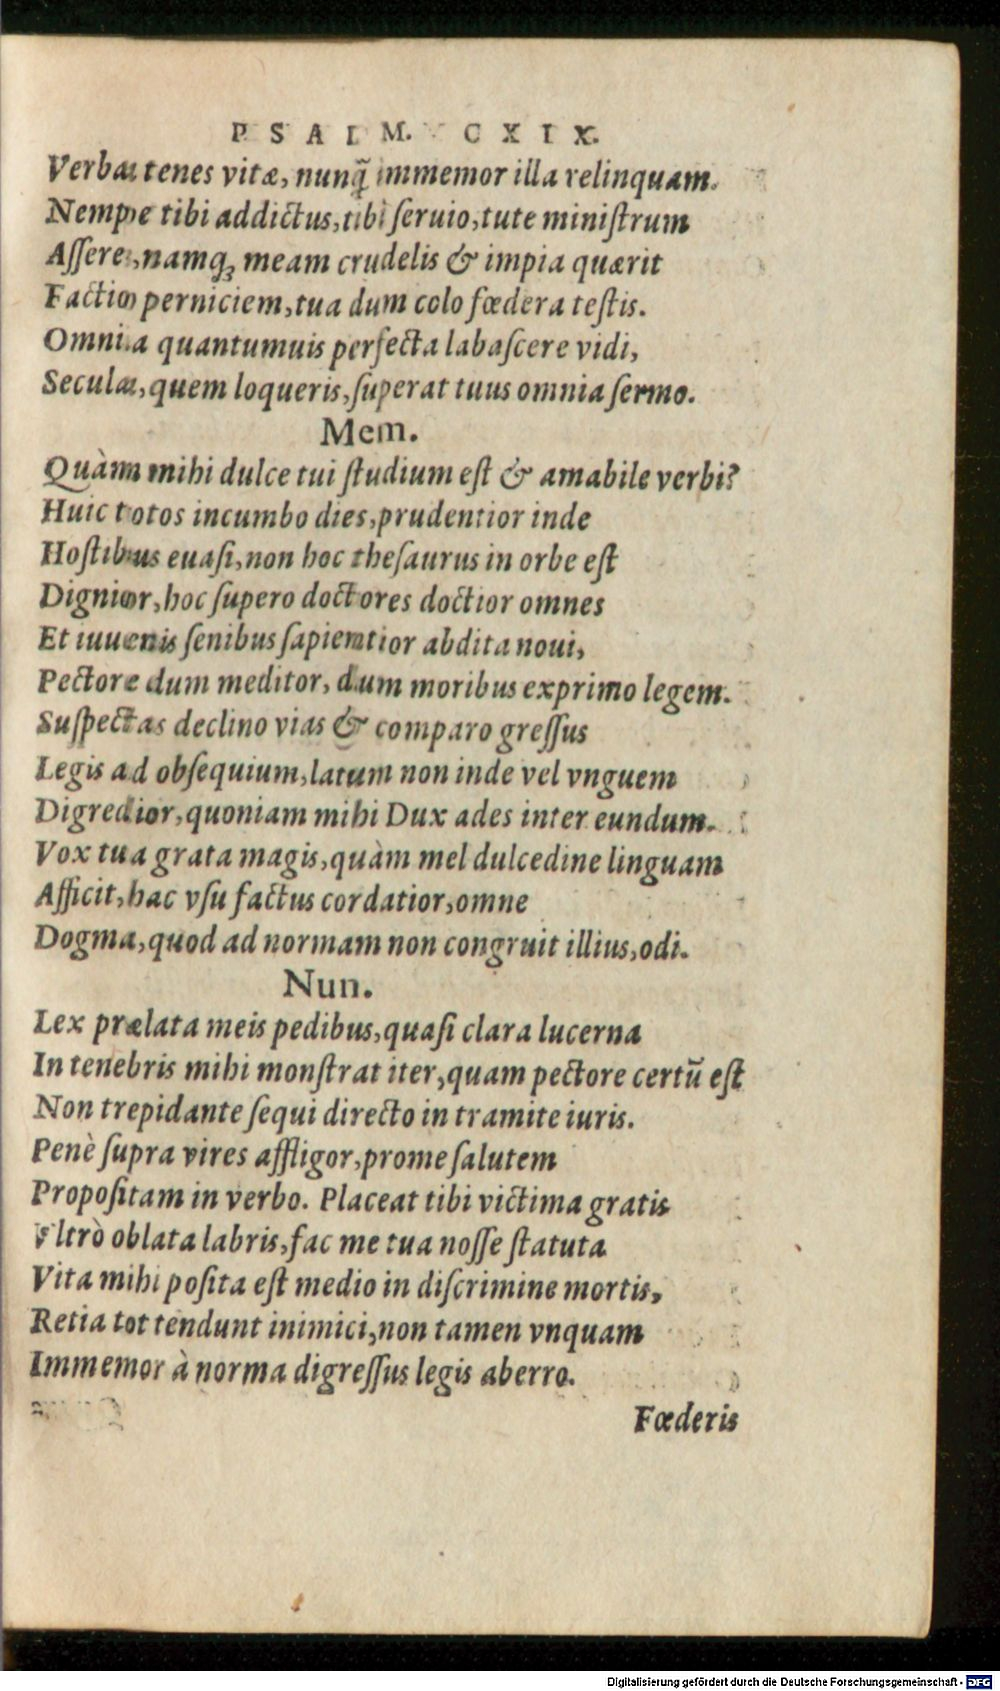 PSALM. CXIX.
Verba tenes vitæ, nunq̃ immemor illa relinquam.
Nempe tibi addictus, tibi ſeruio, tute miniſtrum
Aſſere, namq; meam crudelis & impia quærit
Factio perniciem, tua dum colo fœdera teſtis.
Omnia quantumuis perfecta labaſcere vidi,
Secula, quem loqueris, ſuperat tuus omnia ſermo.
Mem.
Quàm mihi dulce tui ſtudium eſt & amabile verbi?
Huic totos incumbo dies, prudentior inde
Hoſtibus euaſi, non hoc theſaurus in orbe eſt
Dignior, hoc ſupero doctores doctior omnes
Et iuuenis ſenibus ſapientior abdita noui,
Pectore dum meditor, dum moribus exprimo legem.
Suſpectas declino vias & comparo greſſus
Legis ad obſequium, latum non inde vel vnguem
Digredior, quoniam mihi Dux ades inter eundum.
Vox tua grata magis, quàm mel dulcedine linguam
Afficit, hac vſu factus cordatior, omne
Dogma, quod ad normam non congruit illius, odi.
Nun.
Lex prælata meis pedibus, quaſi clara lucerna
In tenebris mihi monſtrat iter, quam pectore certũ eſt
Non trepidante ſequi directo in tramite iuris.
Penè ſupra vires affligor, prome ſalutem
Propoſitam in verbo. Placeat tibi victima gratis
Vltrò oblata labris, fac me tua noſſe ſtatuta
Vita mihi poſita eſt medio in diſcrimine mortis,
Retia tot tendunt inimici, non tamen vnquam
Immemor à norma digreſſus legis aberro.
Fœderis
Digitalisierung gefördert durch die Deutsche Forschungsgemeinschaft - DFG